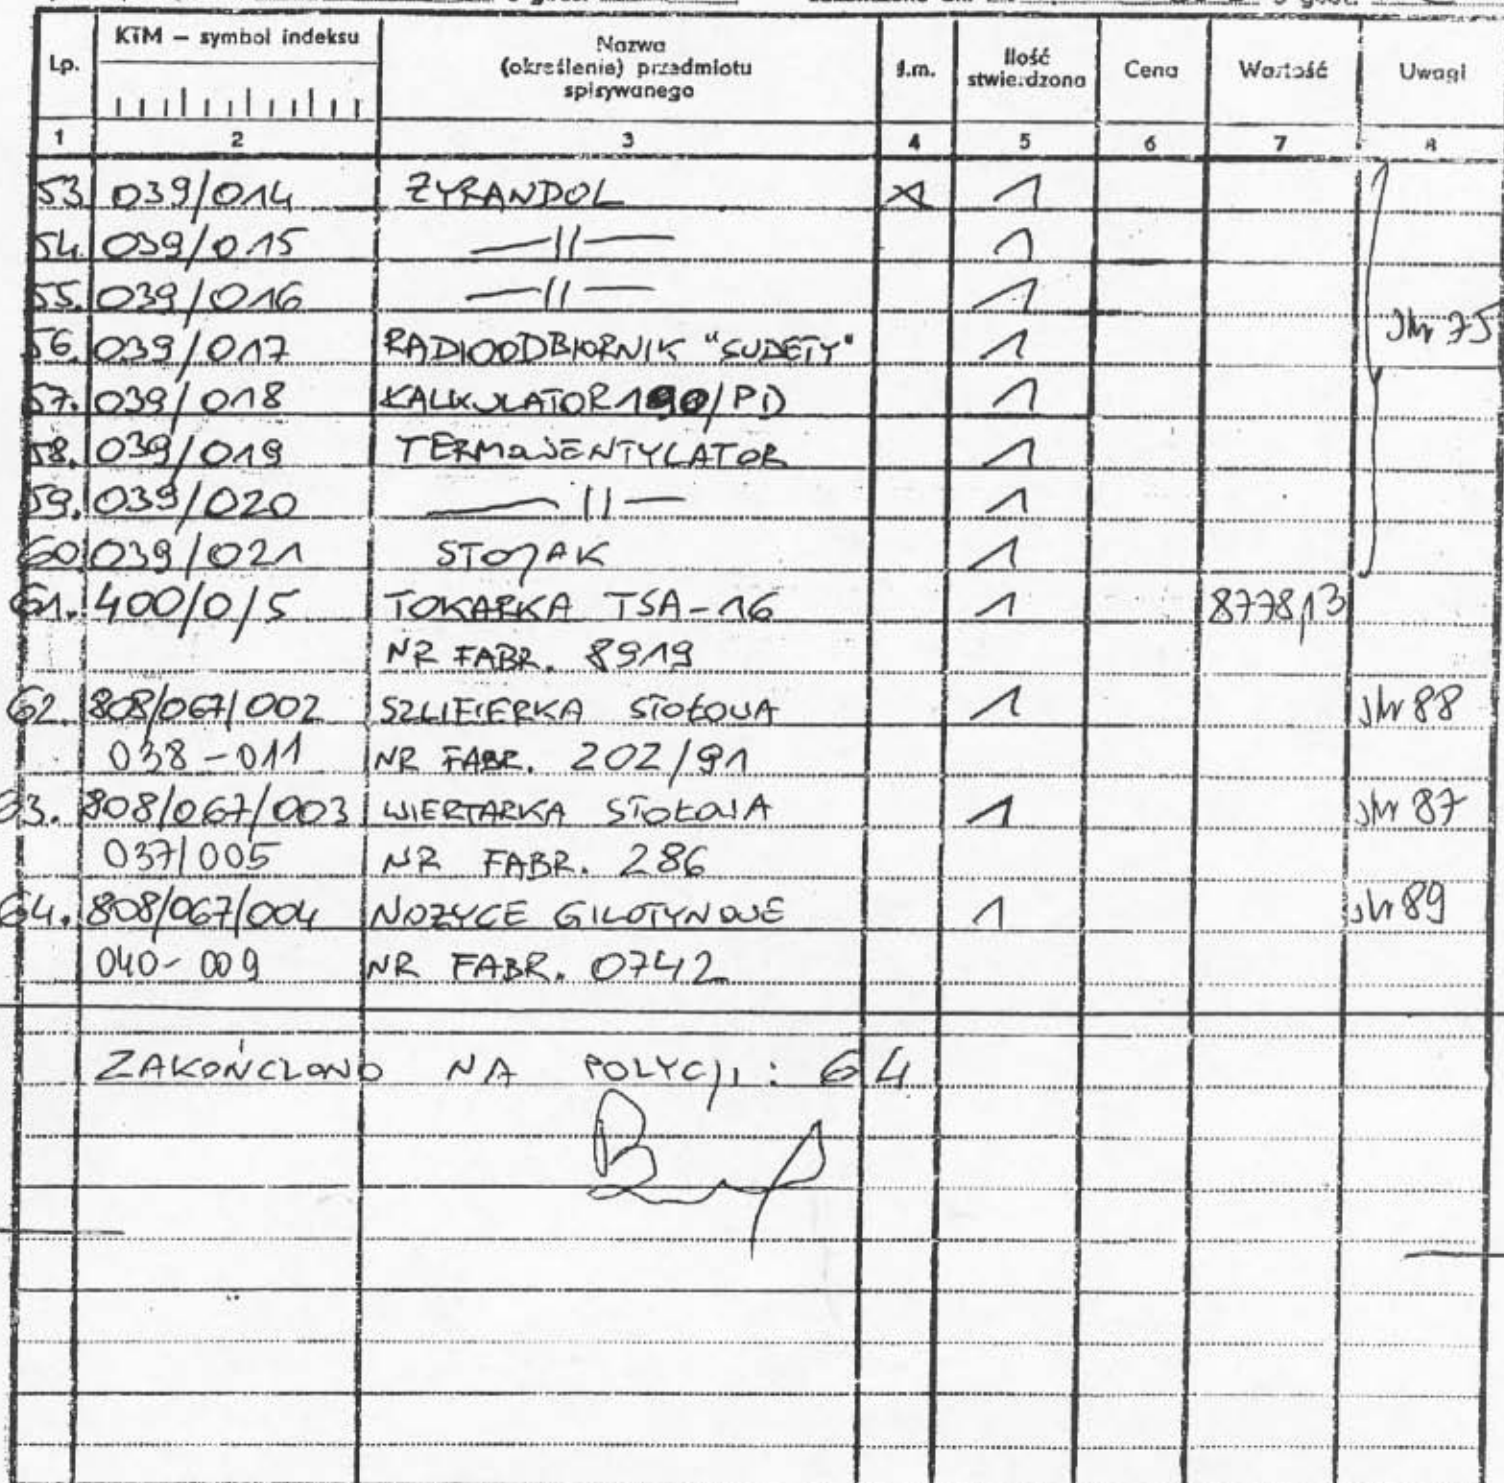 Lp. KTM – symbol indeksu Nazwa (określenie) przedmiotu spisywanego j.m. Ilość stwierdzona Cena Wartość Uwagi
1 2 3 4 5 6 7 8
53 039/014 ŻYRANDOL 1
54. 039/015 —11— 1
55. 039/016 —11— 1
56. 039/017 RADIOODBIORNIK "SUDETY" 1 str 75
57. 039/018 KALKULATOR /PD 1
58. 039/019 TERMOWENTYLATOR 1
59. 039/020 —11— 1
60 039/021 STOJAK 1
61. 400/0/5 TOKARKA TSA-16 1 8778,13
NR FABR. 8919
62. 808/067/002 SZLIFIERKA STOŁOWA 1 str 88
038-011 NR FABR. 202/91
63. 808/067/003 WIERTARKA STOŁOWA 1 str 87
037/005 NR FABR. 286
64. 808/067/004 NOŻYCE GILOTYNOWE 1 str 89
040-009 NR FABR. 0742
ZAKOŃCZONO NA POZYCJI: 64